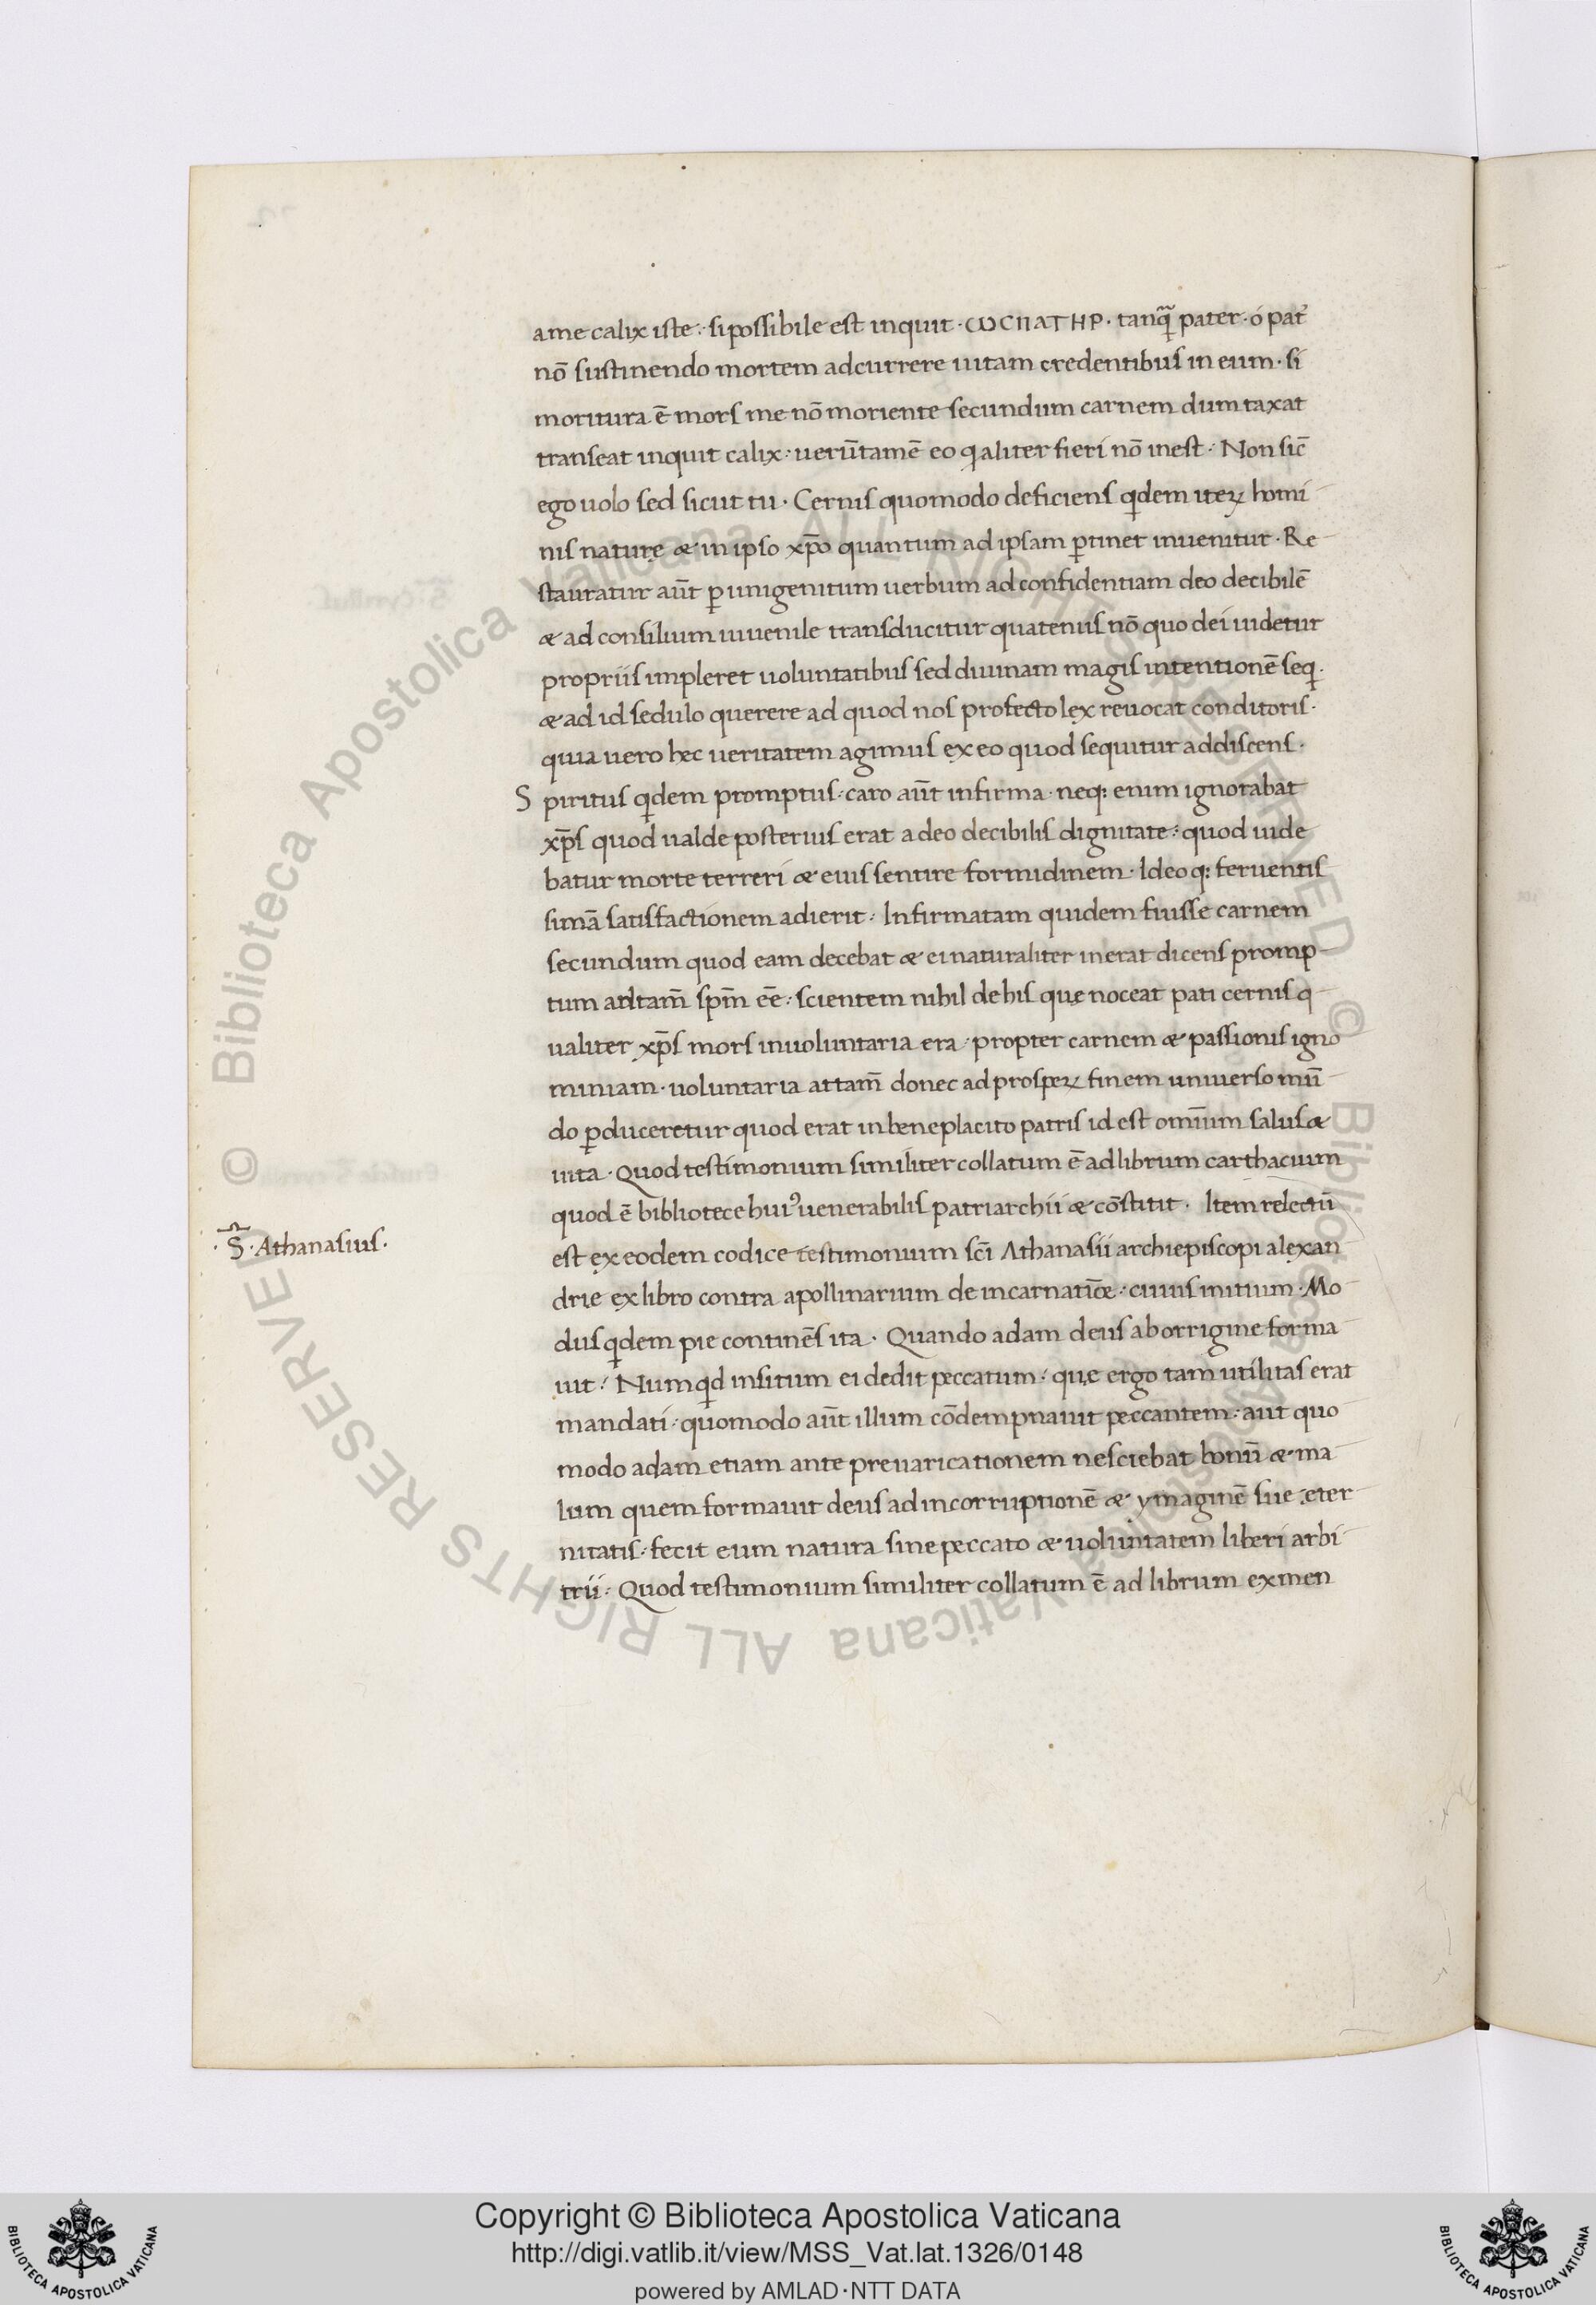 ame calix iste · si possibile est inquit · ωCΠATHP · tanq̃ pater · ó pat̉
nō sustinendo mortem adcurrere uitam credentibus in eum · si
moritura ē mors me nō moriente secundum carnem dumtaxat
transeat inquit calix : uerūtamē eo q aliter fieri nō inest · Non sic̄
ego uolo sed sicut tu · Cernis quomodo deficiens qdem iteꝝ homi
nis naturę & in ipso xp̄o quantum ad ipsam ꝑtinet inuenitur · Re
stauratur aūt ꝑ unigenitum uerbum ad confidentiam deo decibilē
& ad consilium iuuenile transducitur quatenus nō quo dei uidetur
propriis impleret uoluntatibus sed diuinam magis intentionē seq̣ ·
& ad id sedulo querere ad quod nos profecto lex reuocat conditoris ·
quia uero hec ueritatem agimus ex eo quod sequitur addiscens ·
S piritus qdem promptus · caro aūt infirma · neq: enim ignorabat
xp̄s quod ualde posterius erat adeo decibilis dignitate : quod uide
batur morte terreri & eius sentire formidinem · Ideoq: feruentis
simā satisfactionem adierit · Infirmatam quidem fuisse carnem
secundum quod eam decebat & ei naturaliter inerat dicens promp
tum attam̄ sp̄m eē : scientem nihil de his quę noceat pati cernis q
ualiter xp̄s mors inuoluntaria era · propter carnem & passionis igno
miniam · uoluntaria attam̄ donec ad prospeꝝ finem uniuerso mū
do ꝑduceretur quod erat in beneplacito patris id est omīum salus &
uita · Quod testimonium similiter collatum ē ad librum carthacium
quod ē bibliotece hui9 uenerabilis patriarchii & cōstitit · Item relectū
· S̄ · Athanasius ·
est ex eodem codice testimonium sc̄i Athanasii archiepiscopi alexan
drie ex libro contra apollinarium de incarnatiōe : cuius initium · Mo
dus qdem pie continēs ita · Quando adam deus ab orrigine forma
uit : Numqd insitum ei dedit peccatum : quę ergo tam utilitas erat
mandati · quomodo aūt illum cōdempnauit peccantem · aut quo
modo adam etiam ante preuaricationem nesciebat bonū & ma
lum quem formauit deus ad incorruptionē & ymaginē sue eter
nitatis · fecit eum natura sine peccato & uoluntatem liberi arbi
trii · Quod testimonium similiter collatum ē ad librum ex men
© Biblioteca Apostolica Vaticana ALL RIGHTS RESERVED © Biblioteca Apostolica Vaticana ALL RIGHTS RESERVED
Copyright © Biblioteca Apostolica Vaticana
http://digi.vatlib.it/view/MSS_Vat.lat.1326/0148
powered by AMLAD·NTT DATA
BIBLIOTECA APOSTOLICA VATICANA
BIBLIOTECA APOSTOLICA VATICANA